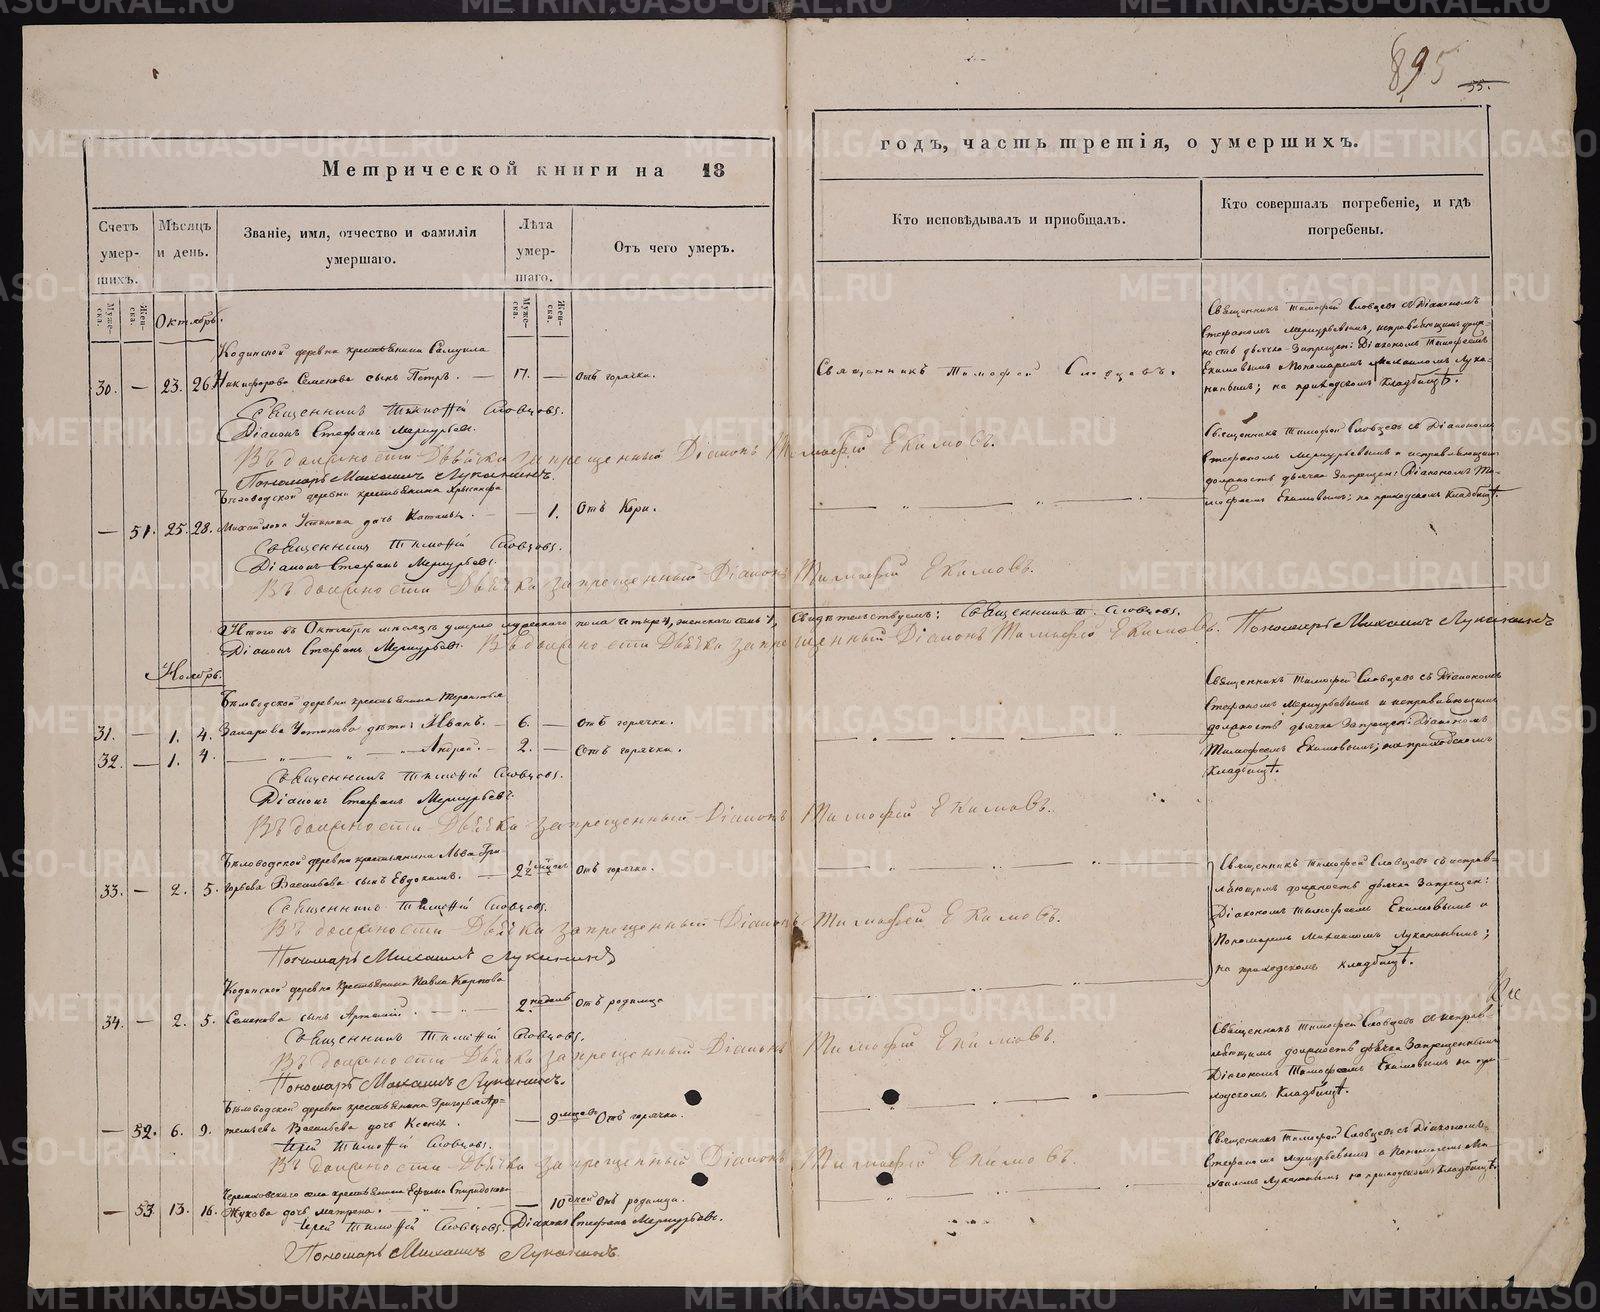 895
55.
Метрической книги на 18
годъ, часть третія, о умершихъ.
Счетъ умер-шихъ.
Мѣсяцъ и день.
Званіе, имя, отчество и фамилія умершаго.
Лѣта умер-шаго.
Отъ чего умеръ.
Кто исповѣдывалъ и приобщалъ.
Кто совершалъ погребеніе, и гдѣ погребены.
Муже-ска.
Жен-ска.
Муже-ска.
Жен-ска.
Октябрь.
Кодинской деревни крестьянина Самуила
30. — 23. 26 Никифорова Семенова сынъ Петръ. — 17. — отъ горячки.
Священникъ Тимофей Словцовъ.
Священникъ Тимофей Словцевъ съ Діакономъ
Стефаномъ Меркурьевымъ, исправляющимъ долж-
ность дьячка Запрещен: Діакономъ Тимофеемъ
Екимовымъ и Пономаремъ Михаиломъ Лука-
нинымъ; на приходскомъ Кладбищѣ.
Священникъ Тимофей Словцовъ.
Діаконъ Стефанъ Меркурьевъ.
Въ должности Дьячка запрещенный Діаконъ Тимофей Екимовъ.
Пономарь Михаилъ Луканинъ.
Бѣловодской деревни крестьянина Хрисанфа
— 51. 25. 28. Михайлова Устинова дочь — — 1. Отъ Кори.
Священникъ Тимофей Словцевъ съ Діакономъ
Стефаномъ Меркурьевымъ и исправляющимъ
должность дьячка Запрещен: Діакономъ Ти-
мофеемъ Екимовымъ; на приходскомъ Кладбищѣ.
Священникъ Тимофей Словцовъ.
Діаконъ Стефанъ Меркурьевъ.
Въ должности Дьячка запрещенный Діаконъ Тимофей Екимовъ.
Итого въ Октябрѣ мѣсяцѣ умерло мужескаго пола четыре, женскаго семь, Свидѣтельствуемъ: Священникъ Т. Словцовъ.
Діаконъ Стефанъ Меркурьевъ. Въ должности Дьячка запрещенный Діаконъ Тимофей Екимовъ. Пономарь Михаилъ Луканинъ
Ноябрь.
Бѣловодской деревни крестьянина Терентья
31. — 1. 4. Захарова Устинова дѣти: Иванъ. — 6. — отъ горячки.
32. — 1. 4. — „ — „ — Андрей. — 2. — отъ горячки.
Священникъ Тимофей Словцевъ съ Діакономъ
Стефаномъ Меркурьевымъ и исправляющимъ
должность дьячка Запрещен: Діакономъ
Тимофеемъ Екимовымъ; на приходскомъ
Кладбищѣ.
Священникъ Тимофей Словцовъ.
Діаконъ Стефанъ Меркурьевъ.
Въ должности Дьячка запрещенный Діаконъ Тимофей Екимовъ.
Бѣловодской деревни крестьянина Льва Гри-
33. — 2. 5. горьева Васильева сынъ Евдокимъ. — 2½ мѣсяц. Отъ горячки.
Священникъ Тимофей Словцевъ съ исправ-
ляющимъ должность дьячка Запрещен:
Діакономъ Тимофеемъ Екимовымъ и
Пономаремъ Михаиломъ Луканинымъ;
на приходскомъ кладбищѣ.
Священникъ Тимофей Словцовъ.
Въ должности Дьячка запрещенный Діаконъ Тимофей Екимовъ.
Пономарь Михаилъ Луканинъ
Кодинской деревни Крестьянина Павла Карпова
34. — 2. 5. Семенова сынъ Артемій. — 2. недель Отъ родимца
Священникъ Тимофей Словцевъ съ исправ-
ляющимъ должность дьячка Запрещеннымъ
Діакономъ Тимофеемъ Екимовымъ на при-
ходскомъ Кладбищѣ.
Священникъ Тимофей Словцовъ.
Въ должности Дьячка запрещенный Діаконъ Тимофей Екимовъ.
Пономарь Михаилъ Луканинъ.
Бѣловодской деревни крестьянина Григорья Ар-
— 52. 6. 9. темьева Васильева дочь Ксенія. — 9 мѣсяцъ Отъ горячки.
Священникъ Тимофей Словцевъ съ Діакономъ
Стефаномъ Меркурьевымъ и Пономаремъ Ми-
хаиломъ Луканинымъ на приходскомъ Кладбищѣ.
Іерей Тимофей Словцовъ.
Въ должности Дьячка запрещенный Діаконъ Тимофей Екимовъ.
села крестьянина Ефима Спиридонова
— 53 13. 16. Жукова дочь Матрена. — 10 дней Отъ родимца.
Іерей Тимофей Словцовъ. Діаконъ Стефанъ Меркурьевъ.
Пономарь Михаилъ Луканинъ.
METRIKI.GASO-URAL.RU